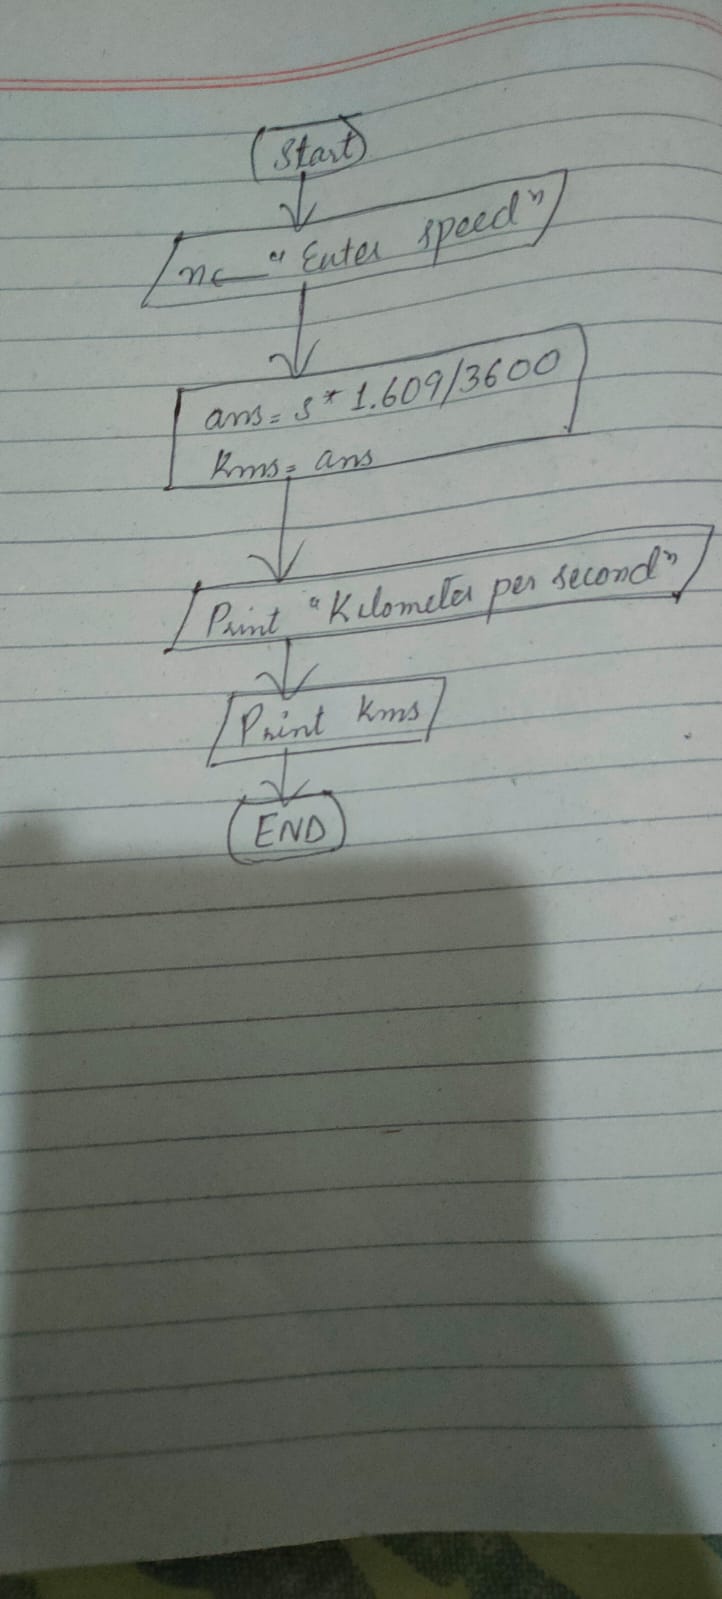 Start
n← "Enter speed"
ans = s * 1.609/3600
kms = ans
Print "Kilometer per second"
Print kms
END